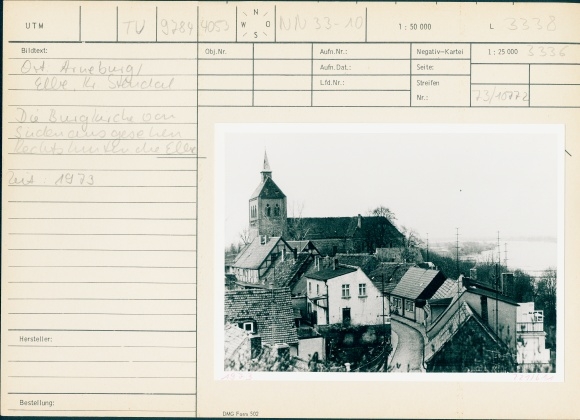 UTM
TU
9784 4053
N
W O
S
NN 33-10
1 : 50 000
L 3338
Bildtext:
Obj.Nr.
Aufn.Nr.:
Negativ-Kartei
1 : 25 000 3336
Ort Arneburg/
Elbe, Kr. Stendal
Aufn.Dat.:
Seite:
Lfd.Nr.:
Streifen
Nr.:
73/10772
Die Burgkirche von
Süden aus gesehen
rechts hinten die Elbe
Zeit: 1973
Hersteller:
Bestellung:
DMG Fava 502